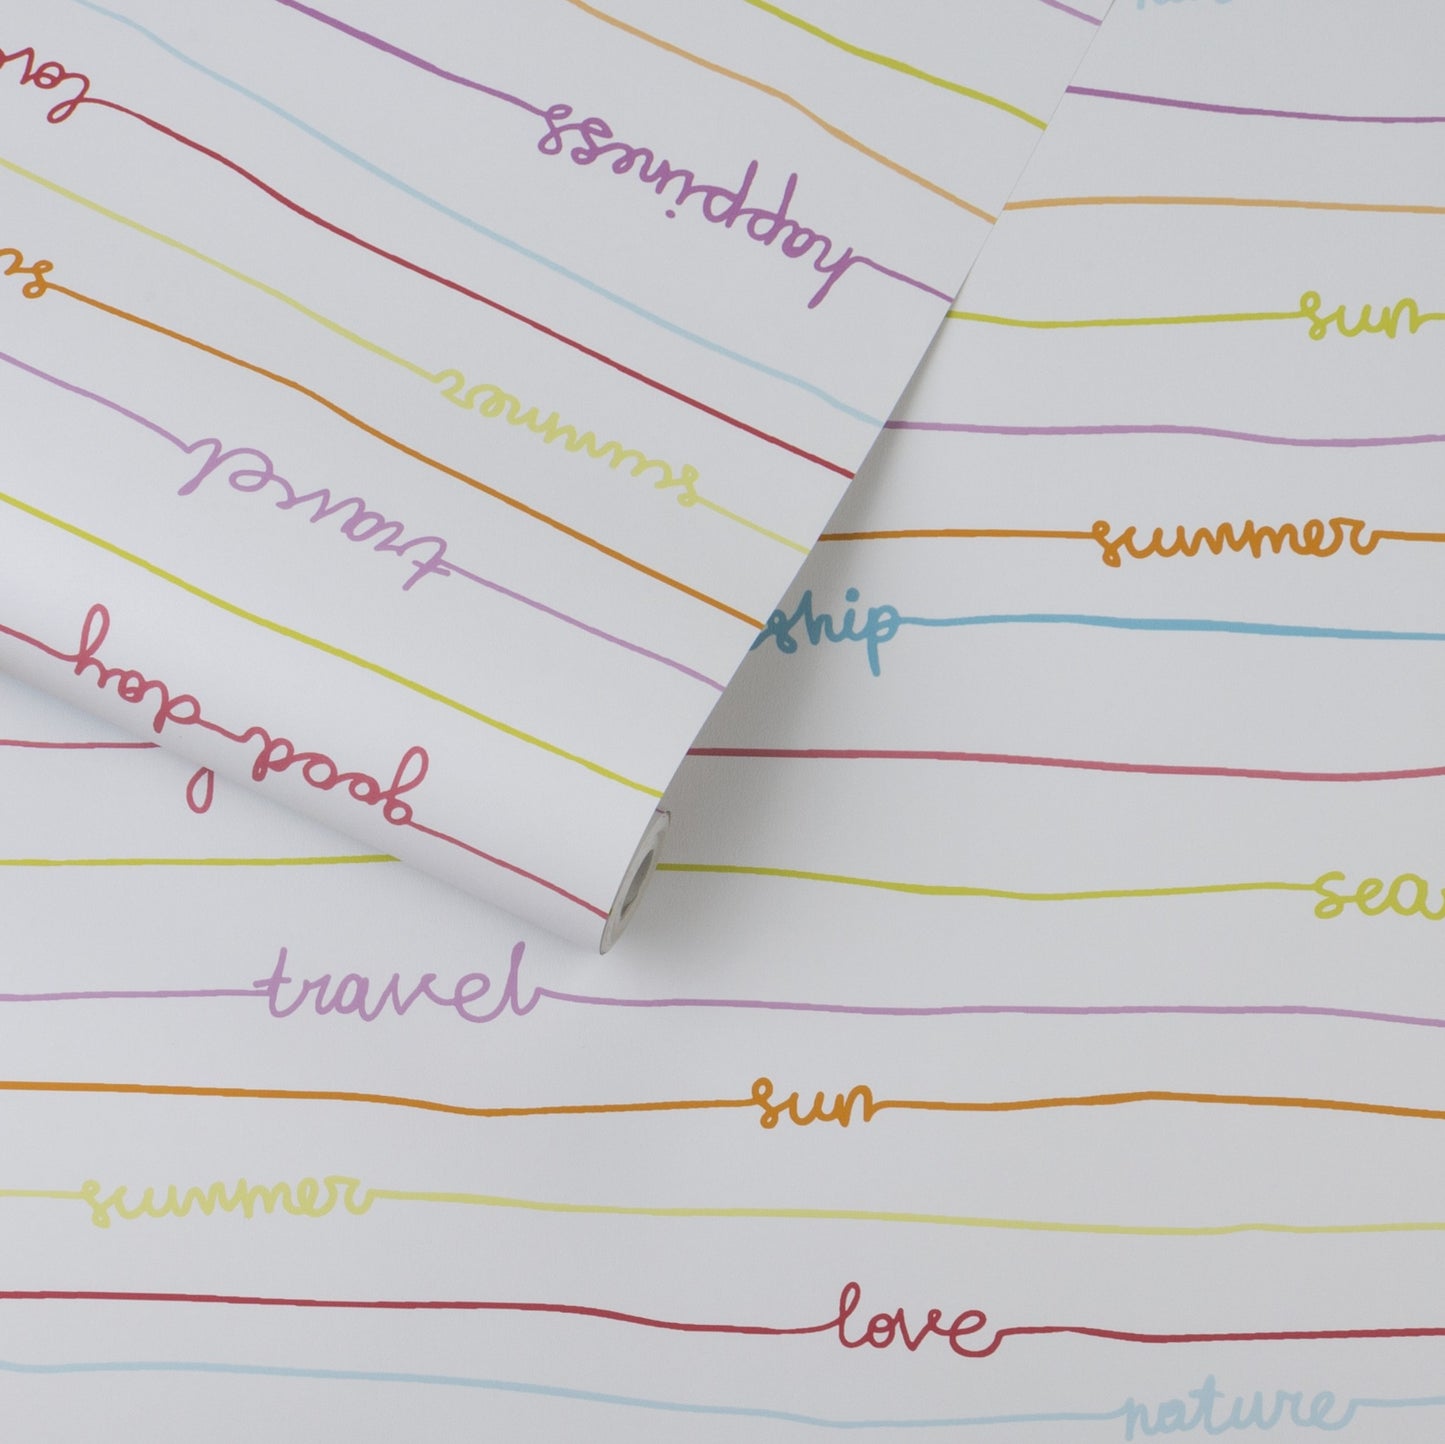 love
happiness
sun
summer
summer
travel
ship
good day
sea
travel
sun
summer
love
nature